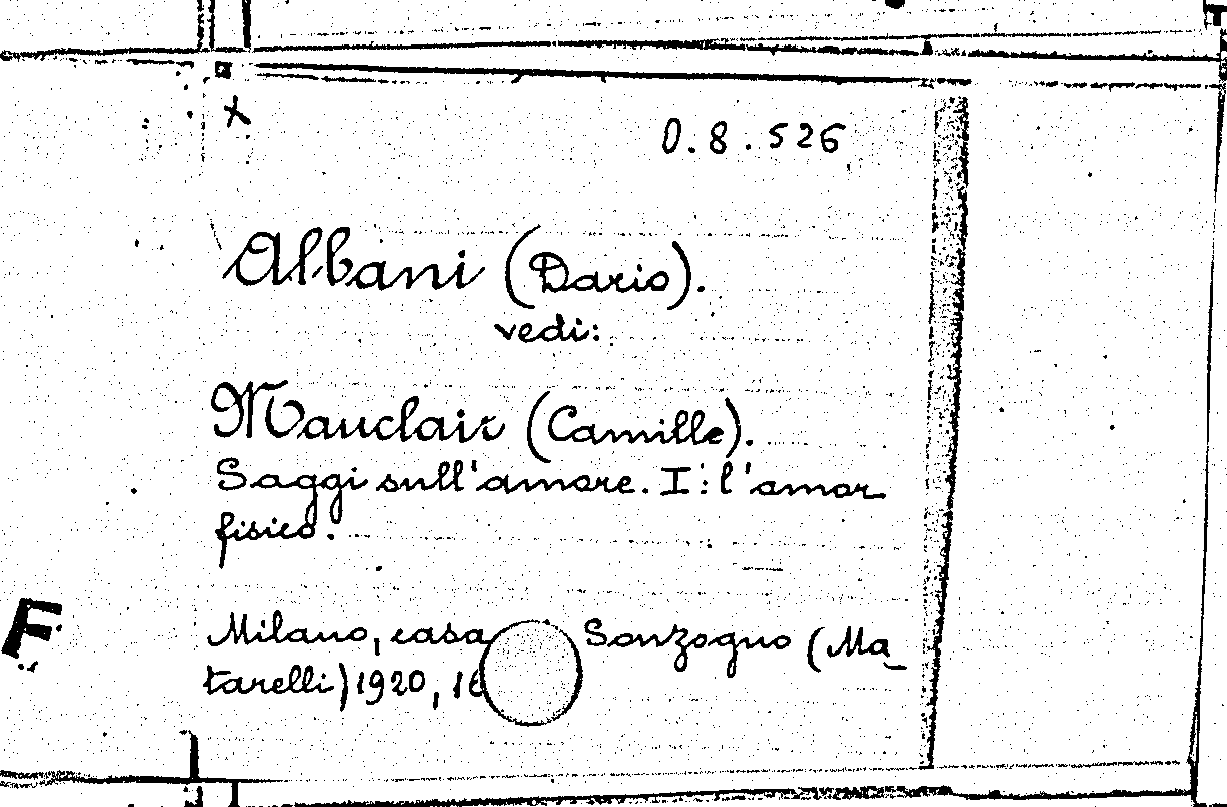 x
0.8.526
Albani (Dario).
vedi:
Mauclair (Camille).
Saggi sull'amore. I: l'amor
fisico.
F
Milano, casa Sonzogno (Ma_
tarelli) 1920, 16